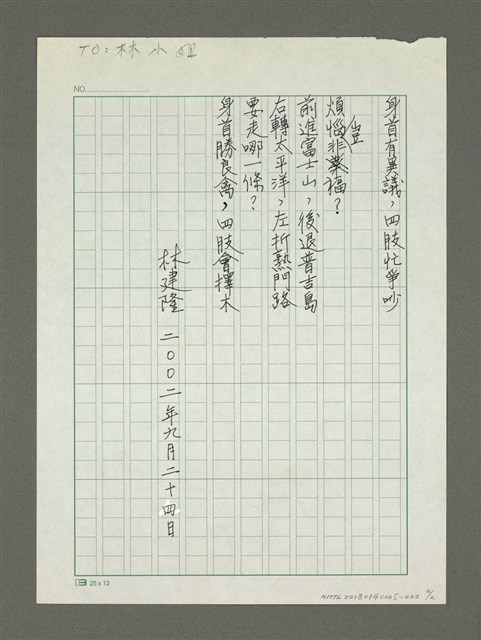 TO：林小姐
NO.
身首有異議，四肢忙爭吵
煩惱豈非福？
前進富士山，後退普吉島
右轉太平洋，左折熱門路
要走哪一條？
身首勝良禽，四肢會擇木
林建隆 二〇〇二年九月二十四日
25x12
NMTL20180140005-002 2/2